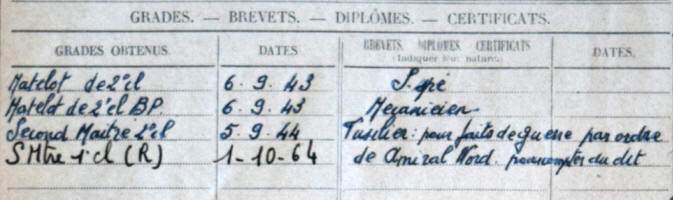 GRADES. — BREVETS. — DIPLÔMES. — CERTIFICATS.
GRADES OBTENUS. DATES BREVETS, DIPLOMES, CERTIFICATS DATES.
(Indiquer leur nature.)
Matelot de 2° cl 6. 9. 43 S. spé
Matelot de 2° cl BP. 6. 9. 43 Mecanicien
Second Maitre 2° cl 5. 9. 44 Fusilier: pour faits de guerre par ordre
S Mtre 1° cl (R) 1-10-64 de Amiral Nord. pour compter du dit